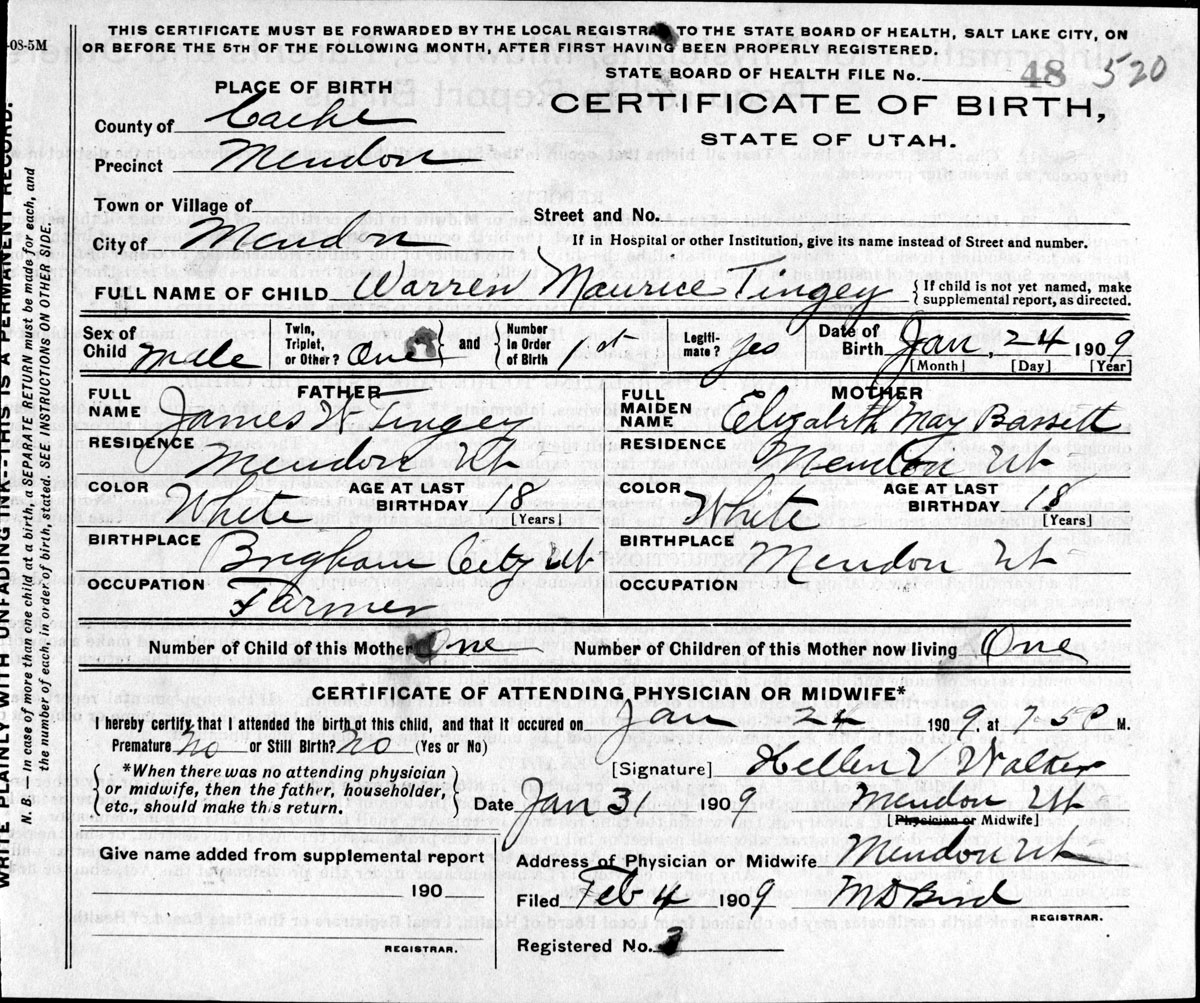 -08-5M
THIS CERTIFICATE MUST BE FORWARDED BY THE LOCAL REGISTRAR TO THE STATE BOARD OF HEALTH, SALT LAKE CITY, ON
OR BEFORE THE 5TH OF THE FOLLOWING MONTH, AFTER FIRST HAVING BEEN PROPERLY REGISTERED.
STATE BOARD OF HEALTH FILE No. 48 520
PLACE OF BIRTH
CERTIFICATE OF BIRTH,
STATE OF UTAH.
County of Cache
Precinct Mendon
Town or Village of
Street and No.
City of Mendon
If in Hospital or other Institution, give its name instead of Street and number.
FULL NAME OF CHILD Warren Maurice Tingey { If child is not yet named, make supplemental report, as directed.
Sex of Child Male Twin, Triplet, or Other? One } and { Number in Order of Birth 1st Legiti-mate? yes Date of Birth Jan, 24 1909
[Month] [Day] [Year]
FATHER
FULL NAME James W Tingey
RESIDENCE Mendon Ut
COLOR White AGE AT LAST BIRTHDAY 18 [Years]
BIRTHPLACE Brigham City Ut
OCCUPATION Farmer
MOTHER
FULL MAIDEN NAME Elizabeth May Bassett
RESIDENCE Mendon Ut
COLOR White AGE AT LAST BIRTHDAY 18 [Years]
BIRTHPLACE Mendon Ut
OCCUPATION
Number of Child of this Mother One Number of Children of this Mother now living One
CERTIFICATE OF ATTENDING PHYSICIAN OR MIDWIFE*
I hereby certify that I attended the birth of this child, and that it occured on Jan 24 1909, at 750 P M.
Premature no or Still Birth? no (Yes or No)
{ *When there was no attending physician
or midwife, then the father, householder,
etc., should make this return. }
[Signature] Hellen V Walker
Date Jan 3 1909 Mendon Ut
[Physician or Midwife]
Give name added from supplemental report
190
REGISTRAR.
Address of Physician or Midwife Mendon Ut
Filed Feb 4 1909 M D Bird
REGISTRAR.
Registered No.
WRITE PLAINLY WITH UNFADING INK--THIS IS A PERMANENT RECORD.
N. B.—In case of more than one child at a birth, a SEPARATE RETURN must be made for each, and
the number of each, in order of birth, stated. SEE INSTRUCTIONS ON OTHER SIDE.